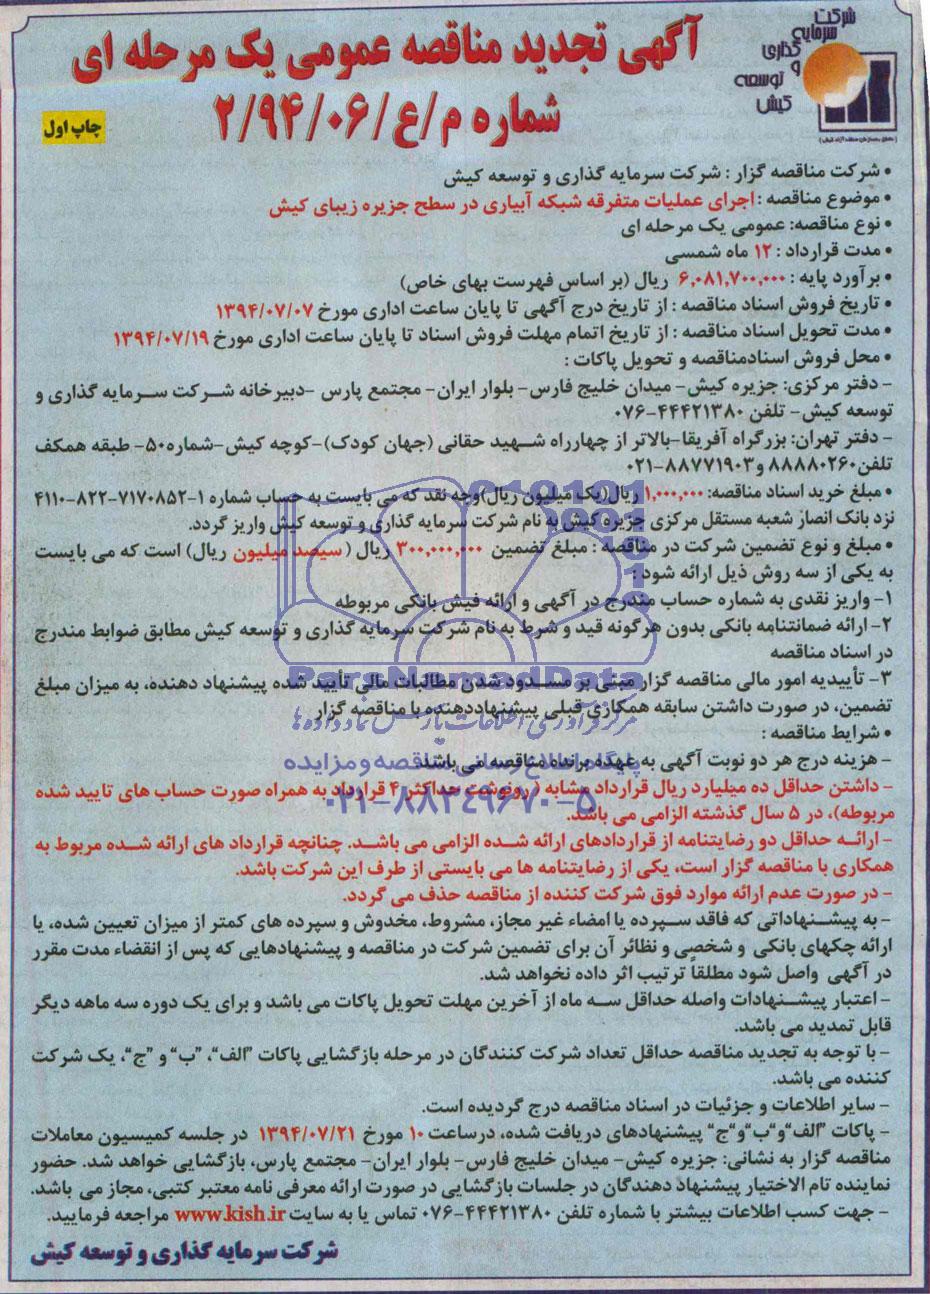 شرکت
سرمایه
گذاری
و
توسعه
کیش
آگهی تجدید مناقصه عمومی یک مرحله ای
شماره م/ع/۲/۹۴/۰۶
چاپ اول
• شرکت مناقصه گزار : شرکت سرمایه گذاری و توسعه کیش
• موضوع مناقصه : اجرای عملیات متفرقه شبکه آبیاری در سطح جزیره زیبای کیش
• نوع مناقصه: عمومی یک مرحله ای
• مدت قرارداد : ۱۲ ماه شمسی
• برآورد پایه : ۶,۰۸۱,۷۰۰,۰۰۰ ریال (بر اساس فهرست بهای خاص)
• تاریخ فروش اسناد مناقصه : از تاریخ درج آگهی تا پایان ساعت اداری مورخ ۱۳۹۴/۰۷/۰۷
• مدت تحویل اسناد مناقصه : از تاریخ اتمام مهلت فروش اسناد تا پایان ساعت اداری مورخ ۱۳۹۴/۰۷/۱۹
• محل فروش اسنادمناقصه و تحویل پاکات :
- دفتر مرکزی: جزیره کیش- میدان خلیج فارس- بلوار ایران- مجتمع پارس -دبیرخانه شرکت سرمایه گذاری و
توسعه کیش- تلفن ۴۴۴۲۱۳۸۰-۰۷۶
- دفتر تهران: بزرگراه آفریقا-بالاتر از چهارراه شهید حقانی (جهان کودک)-کوچه کیش-شماره۵۰- طبقه همکف
تلفن۸۸۸۸۰۲۶۰ و۸۸۷۷۱۹۰۳-۰۲۱
• مبلغ خرید اسناد مناقصه: ۱,۰۰۰,۰۰۰ ریال(یک میلیون ریال)وجه نقد که می بایست به حساب شماره ۱-۷۱۷۰۸۵۲-۸۲۲-۴۱۱۰
نزد بانک انصار شعبه مستقل مرکزی جزیره کیش به نام شرکت سرمایه گذاری و توسعه کیش واریز گردد.
• مبلغ و نوع تضمین شرکت در مناقصه : مبلغ تضمین ۳۰۰,۰۰۰,۰۰۰ ریال ( سیصد میلیون ریال) است که می بایست
به یکی از سه روش ذیل ارائه شود :
۱- واریز نقدی به شماره حساب مندرج در آگهی و ارائه فیش بانکی مربوطه
۲- ارائه ضمانتنامه بانکی بدون هرگونه قید و شرط به نام شرکت سرمایه گذاری و توسعه کیش مطابق ضوابط مندرج
در اسناد مناقصه
ParsNamadData
۳- تأییدیه امور مالی مناقصه گزار مبنی بر مسدود شدن مطالبات مالی تأیید شده پیشنهاد دهنده، به میزان مبلغ
تضمین، در صورت داشتن سابقه همکاری قبلی پیشنهاددهنده با مناقصه گزار
مرکز فرآوری اطلاعات پارس نماد داده ها
• شرایط مناقصه :
- هزینه درج هر دو نوبت آگهی به عهده برنده مناقصه می باشد
پایگاه اطلاع رسانی مناقصه و مزایده
- داشتن حداقل ده میلیارد ریال قرارداد مشابه ( رونوشت حداکثر ۴ قرارداد به همراه صورت حساب های تایید شده
مربوطه)، در ۵ سال گذشته الزامی می باشد.
۰۲۱-۸۸۳۴۹۶۷۰-۵
- ارائه حداقل دو رضایتنامه از قراردادهای ارائه شده الزامی می باشد. چنانچه قرارداد های ارائه شده مربوط به
همکاری با مناقصه گزار است، یکی از رضایتنامه ها می بایستی از طرف این شرکت باشد.
- در صورت عدم ارائه موارد فوق شرکت کننده از مناقصه حذف می گردد.
- به پیشنهاداتی که فاقد سپرده یا امضاء غیر مجاز، مشروط، مخدوش و سپرده های کمتر از میزان تعیین شده، یا
ارائه چکهای بانکی و شخصی و نظائر آن برای تضمین شرکت در مناقصه و پیشنهادهایی که پس از انقضاء مدت مقرر
در آگهی واصل شود مطلقاً ترتیب اثر داده نخواهد شد.
- اعتبار پیشنهادات واصله حداقل سه ماه از آخرین مهلت تحویل پاکات می باشد و برای یک دوره سه ماهه دیگر
قابل تمدید می باشد.
- با توجه به تجدید مناقصه حداقل تعداد شرکت کنندگان در مرحله بازگشایی پاکات "الف"، "ب" و "ج"، یک شرکت
کننده می باشد.
- سایر اطلاعات و جزئیات در اسناد مناقصه درج گردیده است.
- پاکات "الف"و"ب"و"ج" پیشنهادهای دریافت شده، درساعت ۱۰ مورخ ۱۳۹۴/۰۷/۲۱ در جلسه کمیسیون معاملات
مناقصه گزار به نشانی: جزیره کیش- میدان خلیج فارس- بلوار ایران- مجتمع پارس، بازگشایی خواهد شد. حضور
نماینده تام الاختیار پیشنهاد دهندگان در جلسات بازگشایی در صورت ارائه معرفی نامه معتبر کتبی، مجاز می باشد.
- جهت کسب اطلاعات بیشتر با شماره تلفن ۴۴۴۲۱۳۸۰-۰۷۶ تماس یا به سایت www.kish.ir مراجعه فرمایید.
شرکت سرمایه گذاری و توسعه کیش